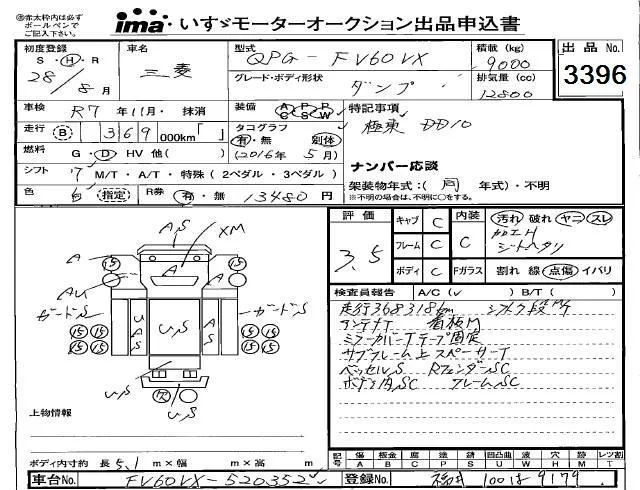 ※赤太枠内は必ず
ボールペンで
ご記入下さい。
ima いすゞモーターオークション出品申込書
初度登録 車名 型式 積載 (kg) 出品 No.
S・H・R 三菱 QPG - FV60VX 9000 3396
28/8月 グレード・ボディ形状 ダンプ 排気量 (cc) 12800
車検 R7 年 11 月・抹消 装備 AC PS PW 特記事項
走行 B 369 000km「 」 タコグラフ 有・無 別体 極東 DD10
燃料 G・D HV 他( ) (2016年 5月) ナンバー応談
シフト 7 M/T・A/T・特殊(2ペダル・3ペダル) 架装物年式:( 同 年式)・不明
色 白 指定 R券 有・無 13480 円 ※不明の場合は、不明に○をする。
評価 3.5 キャブ C 内装 C 汚れ 破れ ヤニ スレ
フレーム C
シートヘタリ
ボディ C Fガラス 割れ 線 点傷 イバリ
検査員報告 A/C( ✓ ) B/T( )
走行368318km
アンテナT 看板ア
ミラーカバーTテープ固定
サブフレーム上スペーサーT
ベッセルS RフェンダーSC
ボディ内SC フレームSC
A,S XM
A A A
AU
ガードS UAS U,S A,S ガードS
15 15 15 15 15 15 15 15 15 15
U,S R
U,S
上物情報
ボディ内寸約 長 5.1 m×幅 m×高 m
記号 傷 板金 腐 塗 錆 凹凸曲 波 穴 跡 レツ割
A B C P S U W H M T
車台No. FV60VX-520352 登録No. 100は 9179